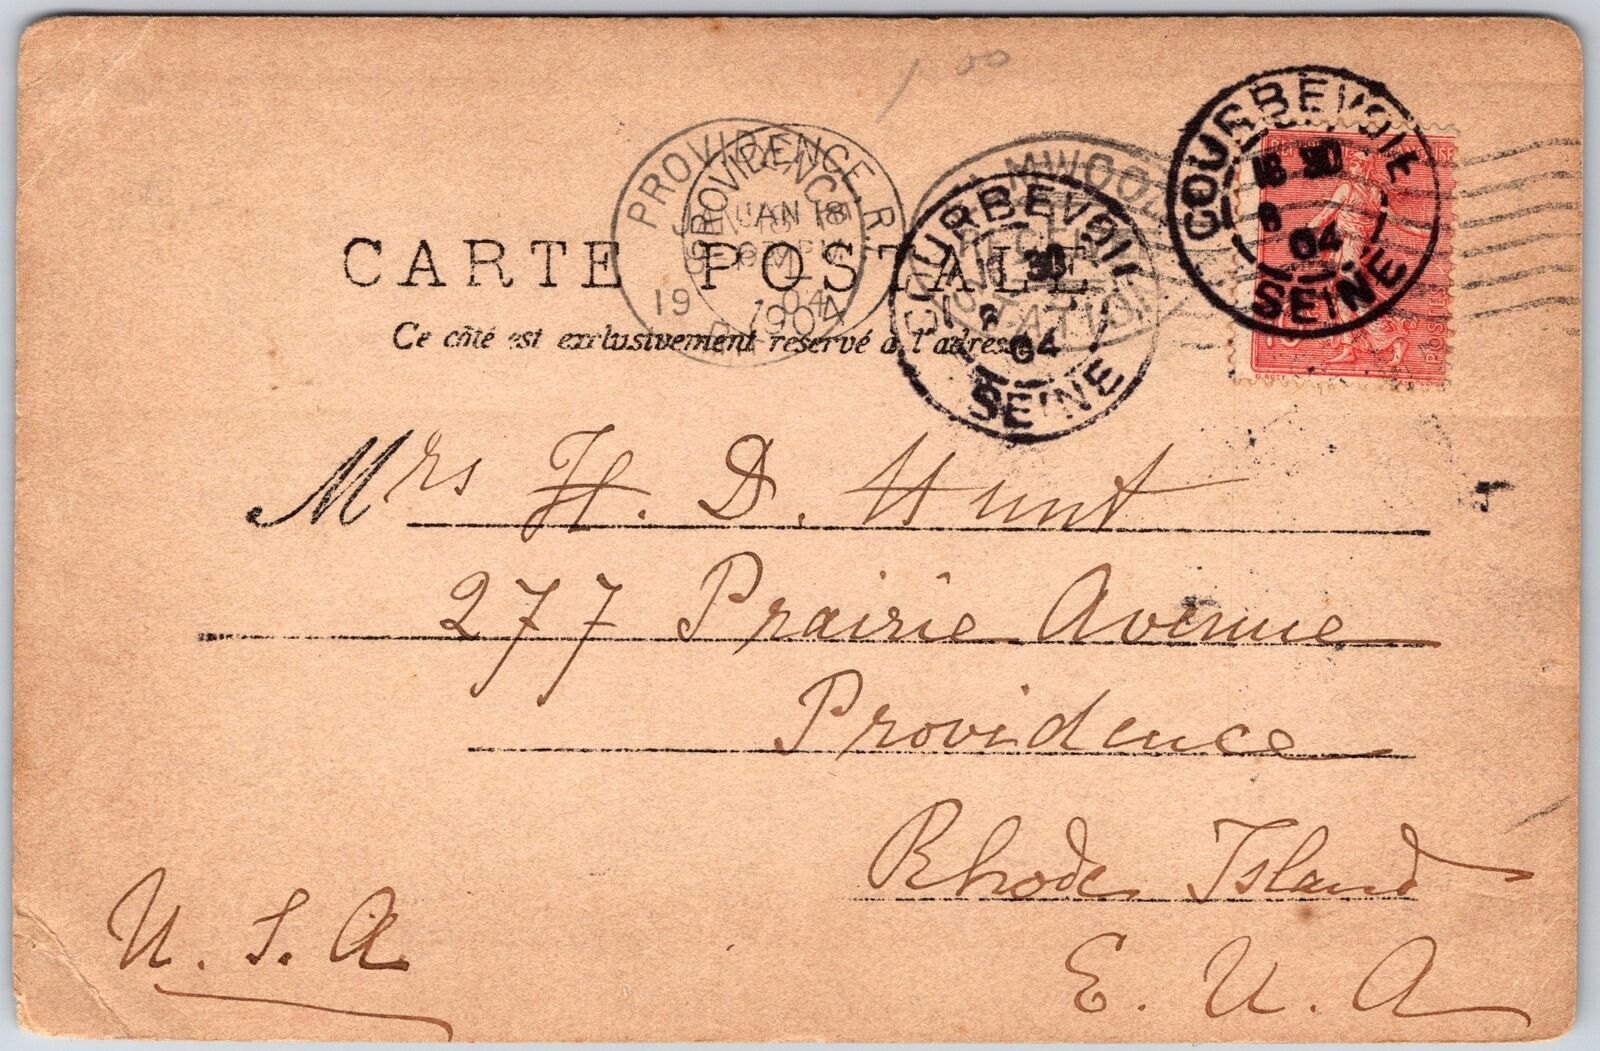 1 00
PROVIDENCE, R.I.
JAN 18
1904
PROVIDENCE
1904
ELMWOOD
REC'D
STATION
COURBEVOIE
30
8
04
SEINE
COURBEVOIE
18 30
8
04
SEINE
POSTES
O. ROTY
CARTE POSTALE
Ce côté est exclusivement réservé à l'adresse
Mrs H. D. Hunt
277 Prairie Avenue
Providence
Rhode Island
U. S. A
E. U. A